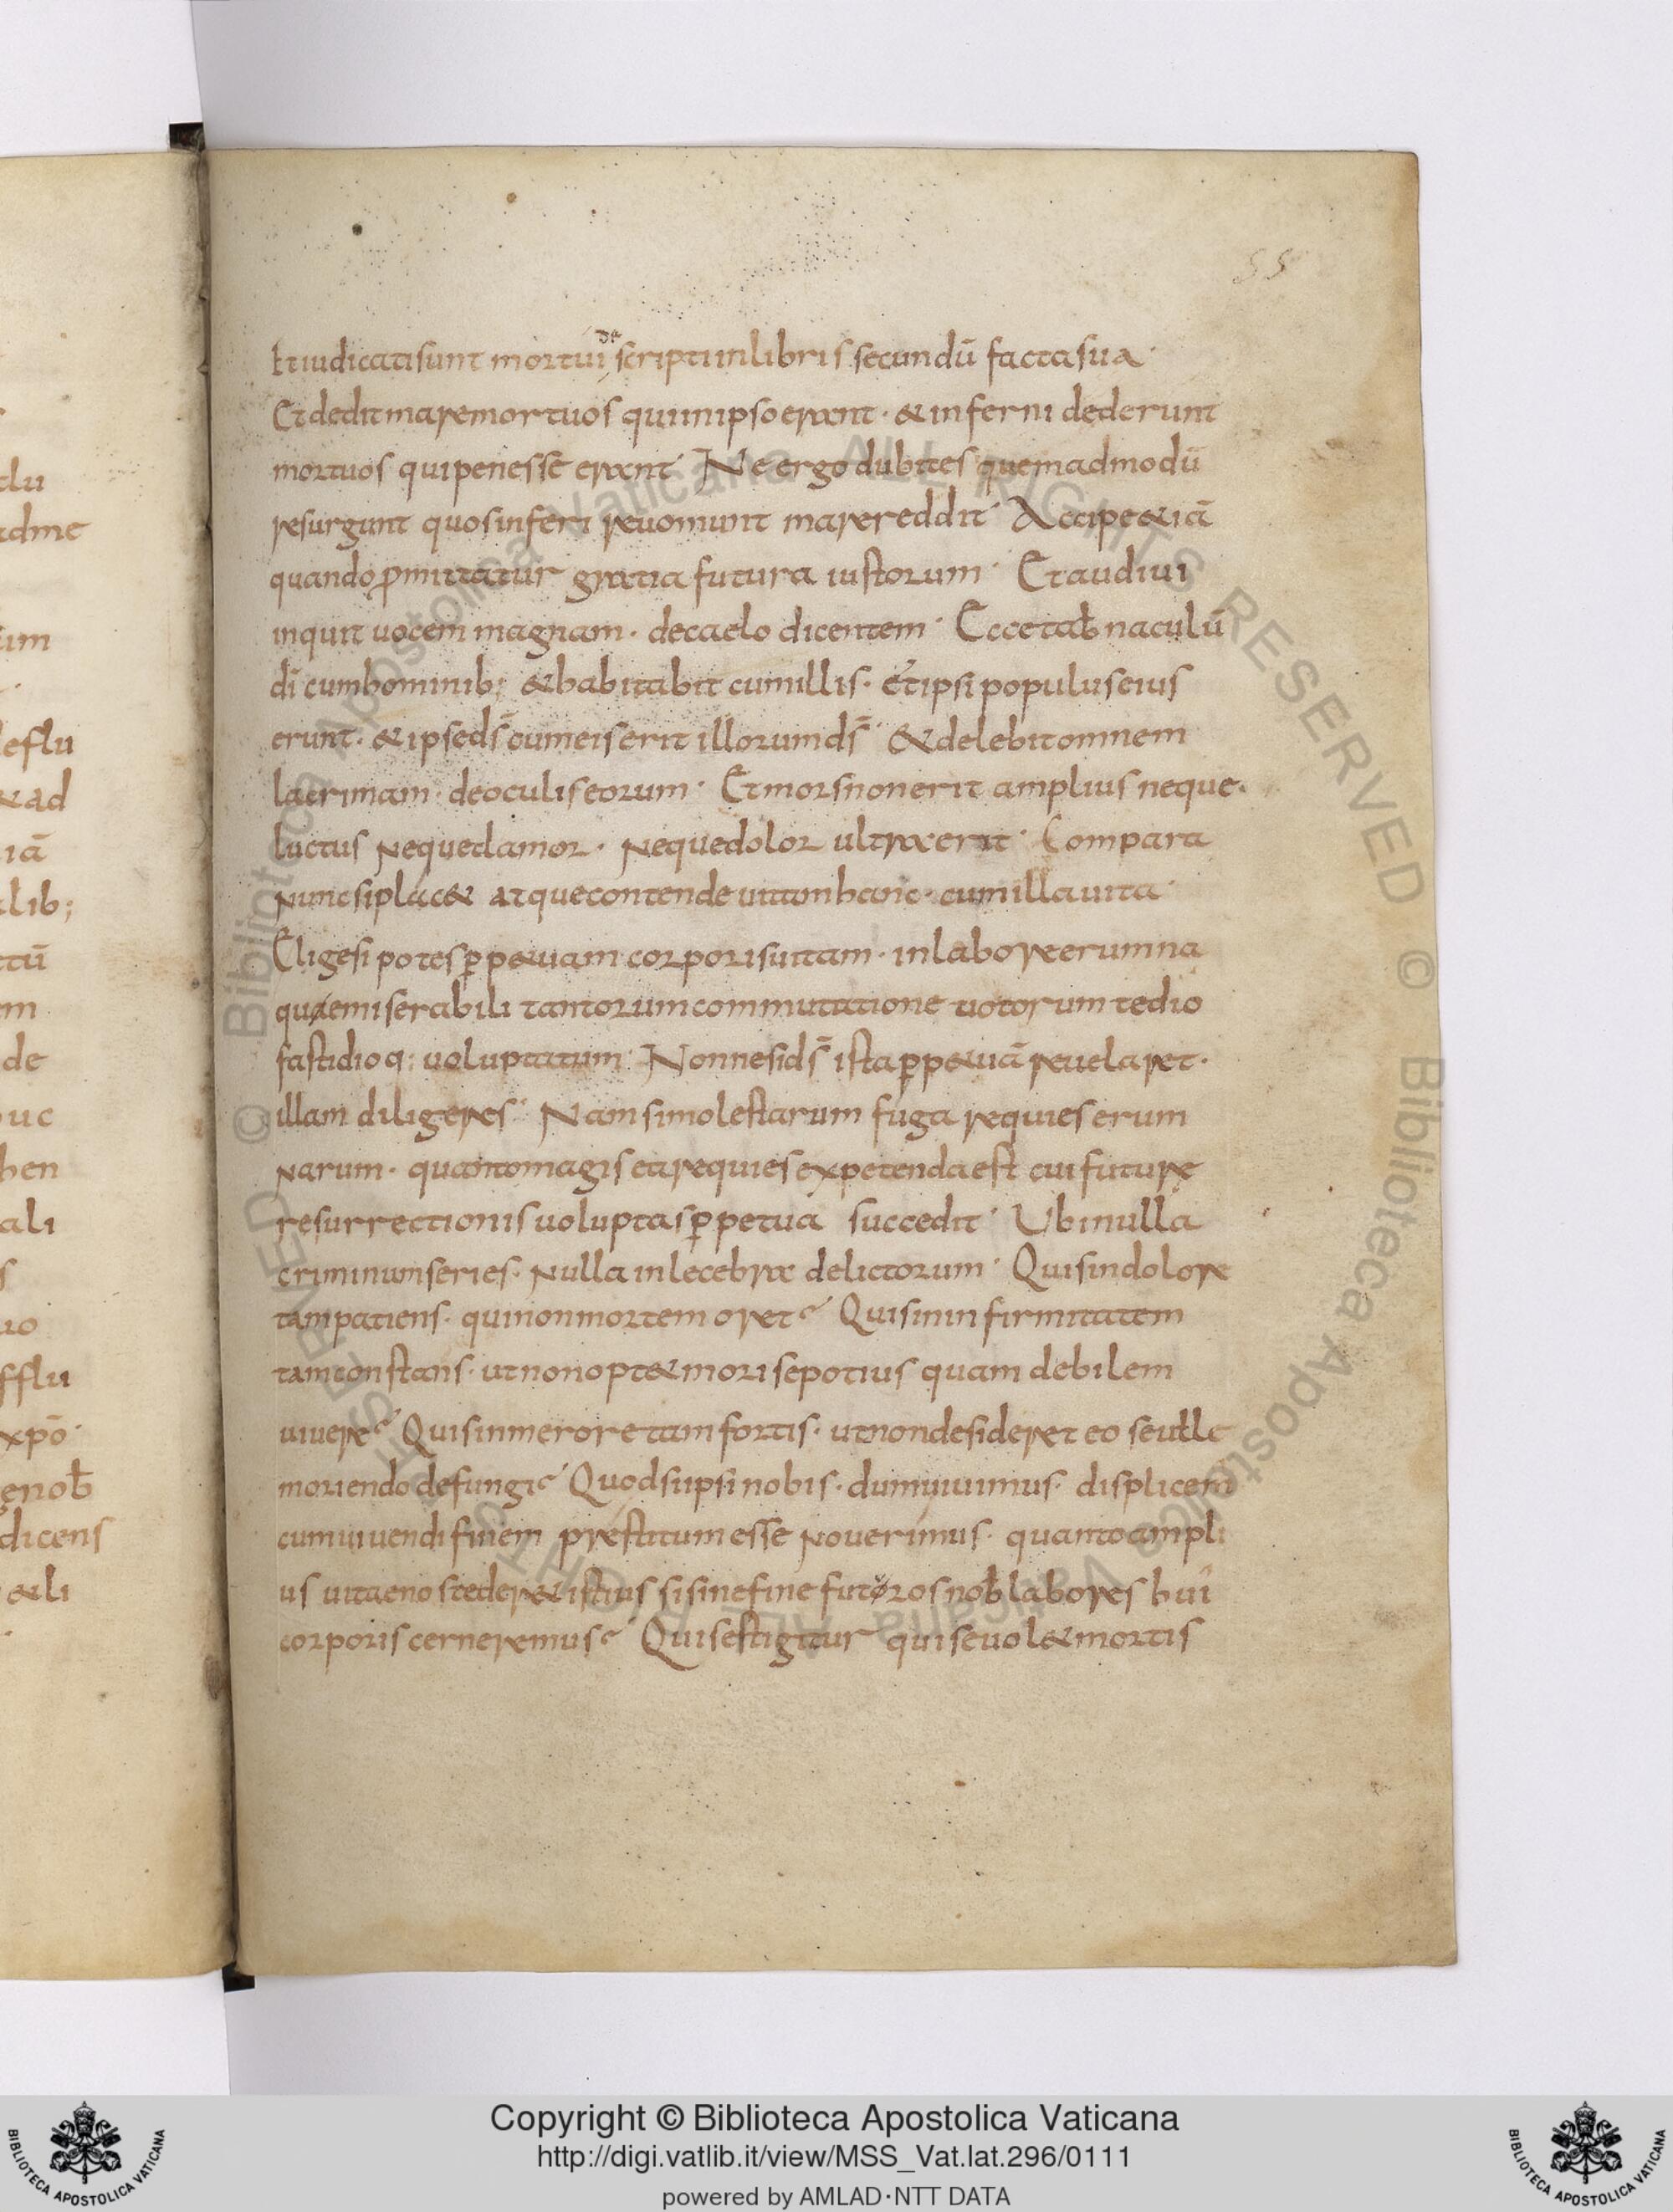 55
lu
adme
um
eflu
&ad
iā
lib;
tū
m
de
uc
hen
ali
s
uo
fflu
xpō
enob̄
dicens
&li
Et iudicati sunt mortui de scripti in libris secundū facta sua·
Et dedit mare mortuos qui in ipso erant· & inferni dederunt
mortuos qui penes se erant· Ne ergo dubites quemadmodū
resurgunt quos inferi reuomunt mare reddit· Accipe & iā
quando p̄mittatur gratia futura iustorum· Et audiui
inquit uocem magnam· de caelo dicentem· Ecce tab̄naculū
dī cum hominib; & habitabit cum illis· et ipsi populus eius
erunt· & ipse ds̄ cum eis erit illorum ds̄· & delebit omnem
lacrimam· de oculis eorum· Et mors non erit amplius neque·
luctus neque clamor· neque dolor ultra erit· Compara
nunc si plac& atque contende uitam hanc· cum illa uita·
Elige si potes p̱p&uam corporis uitam· in labore erumna
quae miserabili tantorum commutatione uotorum tedio
fastidioq; uoluptatum· Nonne si ds̄ ista p̱p&uā reuelaret·
illam diligeres· Nam si molestarum fuga requies erum
narum· quanto magis ea requies expetenda est cui future
resurrectionis uoluptas p̱petua succedit· Ubi nulla
criminum series· nulla inlecebra delictorum· Quis in dolore
tam patiens· qui non mortem oret? Quis in infirmitatem
tam constans· ut non opt& mori se potius quam debilem
uiuere? Quis in merore tam fortis· ut non desideret eo se uelle
moriendo defungi? Quod si ipsi nobis· dum uiuimus· displicem
cum uiuendi finem prestitum esse nouerimus· quanto ampli
us uitae nos teder& istius si sine fine futoros nob̄ labores hui
corporis cerneremus? Quis est igitur qui se uol& mortis
Copyright © Biblioteca Apostolica Vaticana
http://digi.vatlib.it/view/MSS_Vat.lat.296/0111
powered by AMLAD·NTT DATA
BIBLIOTECA APOSTOLICA VATICANA
BIBLIOTECA APOSTOLICA VATICANA
© Biblioteca Apostolica Vaticana ALL RIGHTS RESERVED © Biblioteca Apostolica Vaticana ALL RIGHTS RESERVED